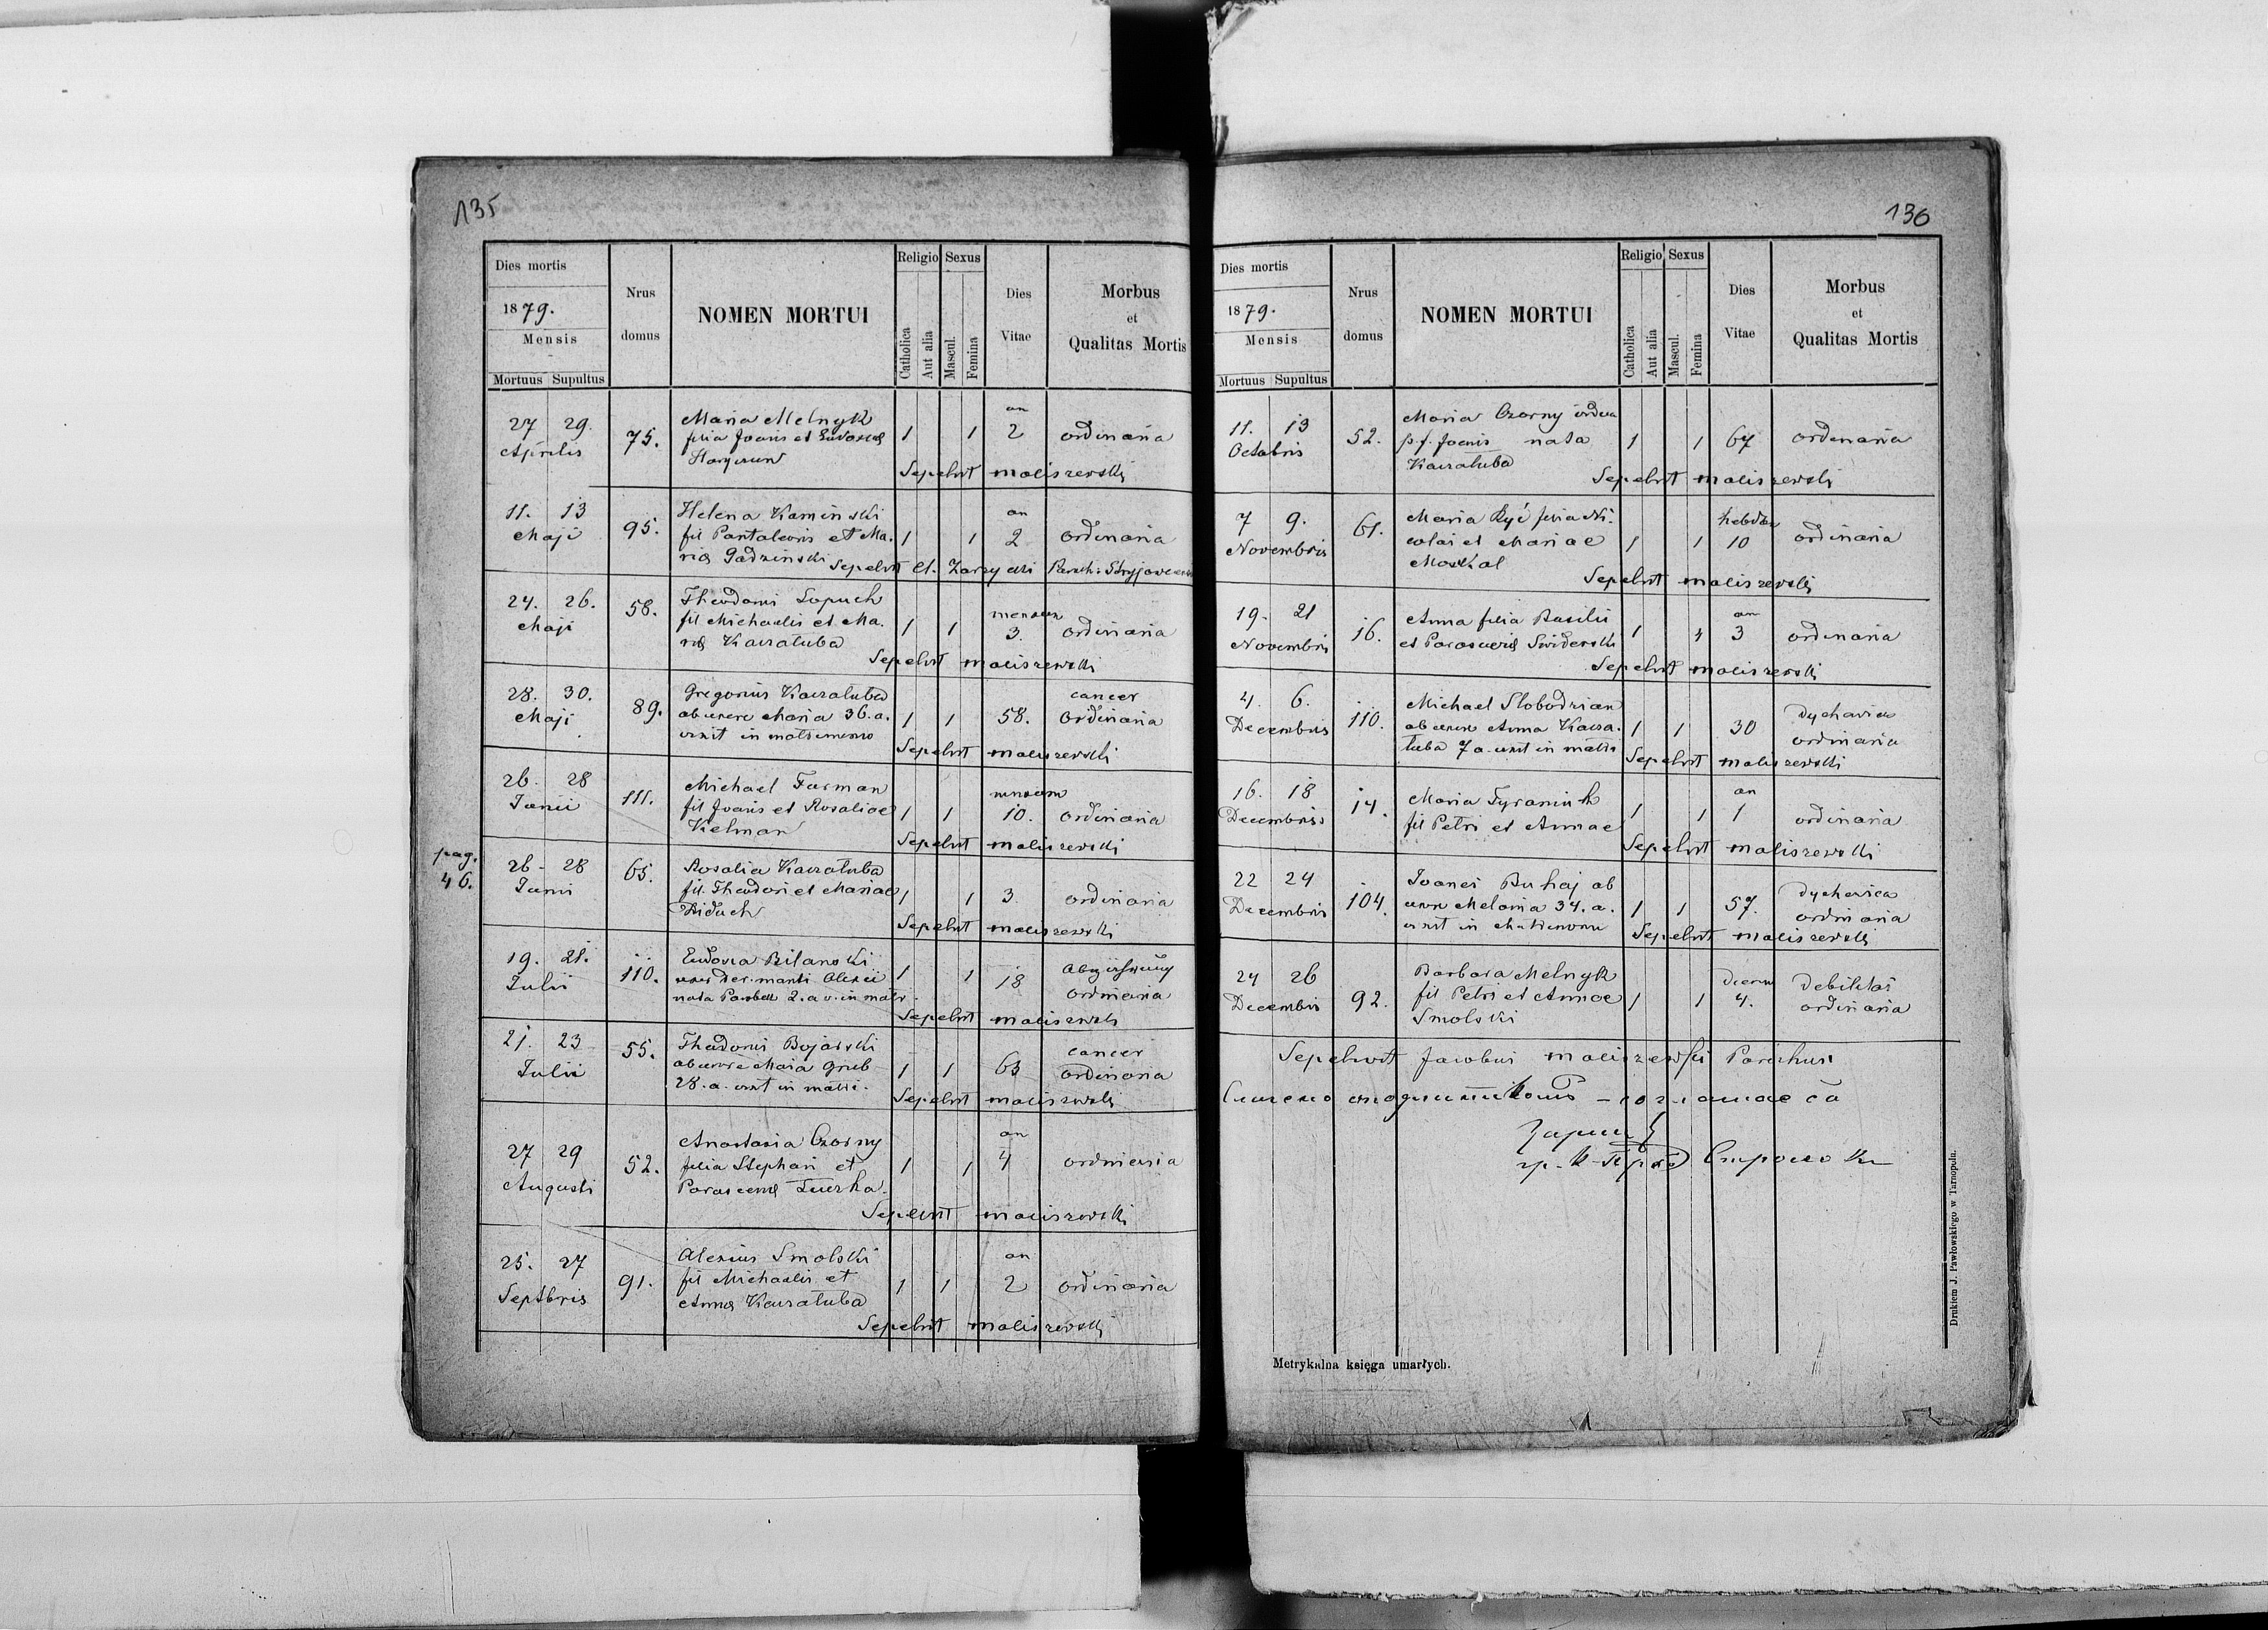 135
Dies mortis
1879.
Mensis
Mortuus Supultus
Nrus domus
NOMEN MORTUI
Religio
Catholica
Aut alia
Sexus
Mascul.
Femina
Dies Vitae
Morbus
et
Qualitas Mortis
27 29. Aprilis 75. Maria Melnyk 1 1 an 2 ordinaria
filia Joanis et Eudoxiæ
Sepelivit Maliszewski
11. 13 Maji 95. Helena Kaminski 1 1 an 2 ordinaria
fil Pantaleonis et Ma-
riæ Gadzinski Sepelivit Zarzycki Paroch:
24. 26. Maji 58. Theodorus Lopuch 1 1 mensium 3. ordinaria
fil Michaelis et Ma-
riæ Kawałuba
Sepelivit Maliszewski
28. 30. Maji 89. Gregorius 1 1 58. cancer
ab uxore Maria 36. a. ordinaria
vixit in matrimonio
Sepelivit Maliszewski
26. 28 Junii 111. Michael Furman 1 1 mensium 10. ordinaria
fil Joanis et Rosaliae
Kelman
Sepelivit Maliszewski
pag.
46.
26 - 28 Junii 65. Rosalia 1 1 3. ordinaria
fil. Theodori et Mariae
Diduch
Sepelivit Maliszewski
19. 21. Julii 110. Eudoxia Bilanski 1 1 18
uxor der. mariti Alexii ordinaria
nata 2. a v. in matr.
Sepelivit Maliszewski
21. 23 Julii 55. Theodorus Bojarski 1 1 63 cancer
ab uxore Maria Grub ordinaria
28. a. vixit in matri.
Sepelivit Maliszewski
27 29 Augusti 52. Anastasia Czorny 1 1 an 4 ordinaria
filia Stephani et
Parascevæ
Sepelivit Maliszewski
25. 27 Septbris 91. Alexius Smolski 1 1 an 2 ordinaria
fil Michaelis et
Annæ
Sepelivit Maliszewski
136
Dies mortis
1879.
Mensis
Mortuus Supultus
Nrus domus
NOMEN MORTUI
Religio
Catholica
Aut alia
Sexus
Mascul.
Femina
Dies Vitae
Morbus
et
Qualitas Mortis
11. 13 Octobris 52. Maria Czorny vidua 1 1 67 ordinaria
p. f. Joanis nata
Sepelivit Maliszewski
7 9. Novembris 61. Maria Kyć filia Ni- 1 1 hebdom 10 ordinaria
colai et Mariae
Moskal
Sepelivit Maliszewski
19. 21 Novembris 16. Anna filia Basilii 1 1 an 3 ordinaria
et Parasceviæ Swiderski
Sepelivit Maliszewski
4. 6. Decembris 110. Michael Slobodzian 1 1 30 dychavica
ab uxore Anna ordinaria
7 a. vixit in matri
Sepelivit Maliszewski
16. 18 Decembris 14. Maria 1 1 an 1 ordinaria
fil Petri et Annae
Sepelivit Maliszewski
22 24 Decembris 104. Joanes Buhaj ab 1 1 57. dychavica
uxore Melania 34. a. ordinaria
vixit in Matrimonio
Sepelivit Maliszewski
24 26 Decembris 92. Barbara Melnyk 1 1 dierum 4. debilitas
fil Petri et Annae ordinaria
Smolski
Sepelivit Jacobus Maliszewski Parochus
Metrykalna księga umarłych.
Drukiem J. Pawłowskiego w Tarnopolu.